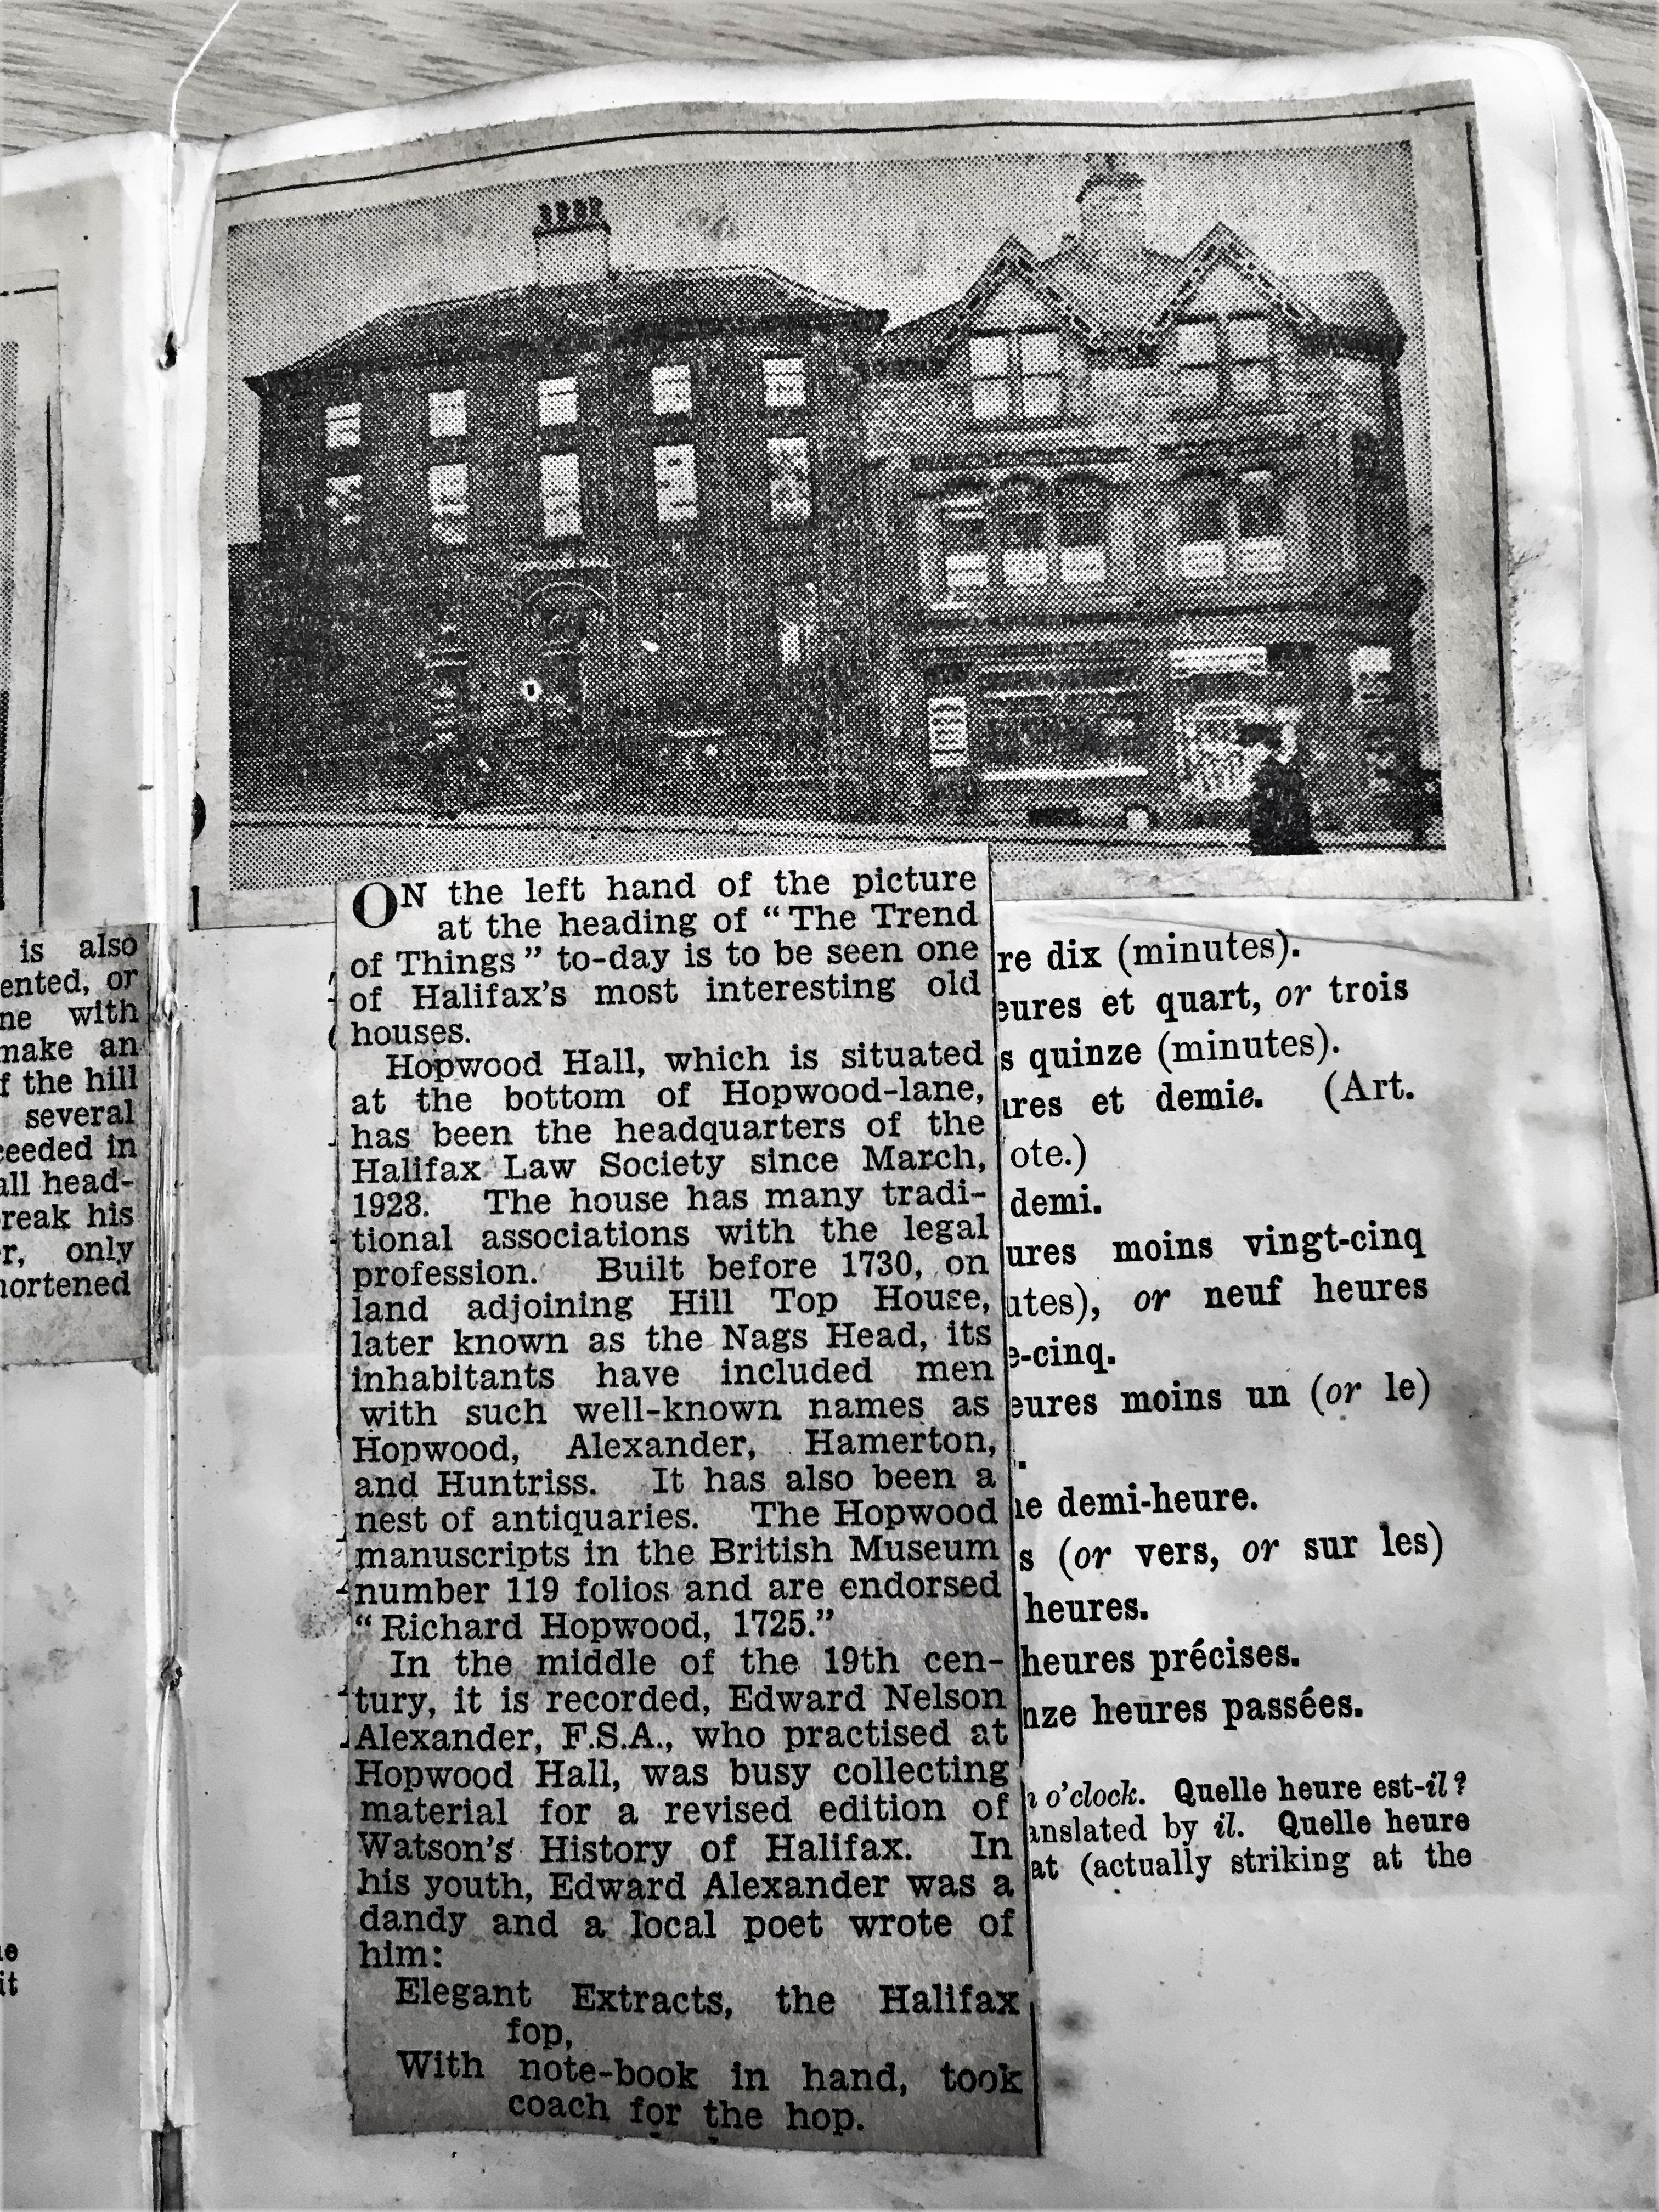 is also
ented, or
ne with
make an
f the hill
several
ceeded in
all head-
reak his
r, only
hortened
it
ON the left hand of the picture
at the heading of “The Trend
of Things” to-day is to be seen one
of Halifax's most interesting old
houses.
Hopwood Hall, which is situated
at the bottom of Hopwood-lane,
has been the headquarters of the
Halifax Law Society since March,
1928. The house has many tradi-
tional associations with the legal
profession. Built before 1730, on
land adjoining Hill Top House,
later known as the Nags Head, its
inhabitants have included men
with such well-known names as
Hopwood, Alexander, Hamerton,
and Huntriss. It has also been a
nest of antiquaries. The Hopwood
manuscripts in the British Museum
number 119 folios and are endorsed
“Richard Hopwood, 1725.”
In the middle of the 19th cen-
tury, it is recorded, Edward Nelson
Alexander, F.S.A., who practised at
Hopwood Hall, was busy collecting
material for a revised edition of
Watson's History of Halifax. In
his youth, Edward Alexander was a
dandy and a local poet wrote of
him:
Elegant Extracts, the Halifax
fop,
With note-book in hand, took
coach for the hop.
re dix (minutes).
eures et quart, or trois
s quinze (minutes).
ures et demie. (Art.
ote.)
demi.
ures moins vingt-cinq
utes), or neuf heures
e-cinq.
eures moins un (or le)
ne demi-heure.
s (or vers, or sur les)
heures.
heures précises.
nze heures passées.
o'clock. Quelle heure est-il?
anslated by il. Quelle heure
at (actually striking at the